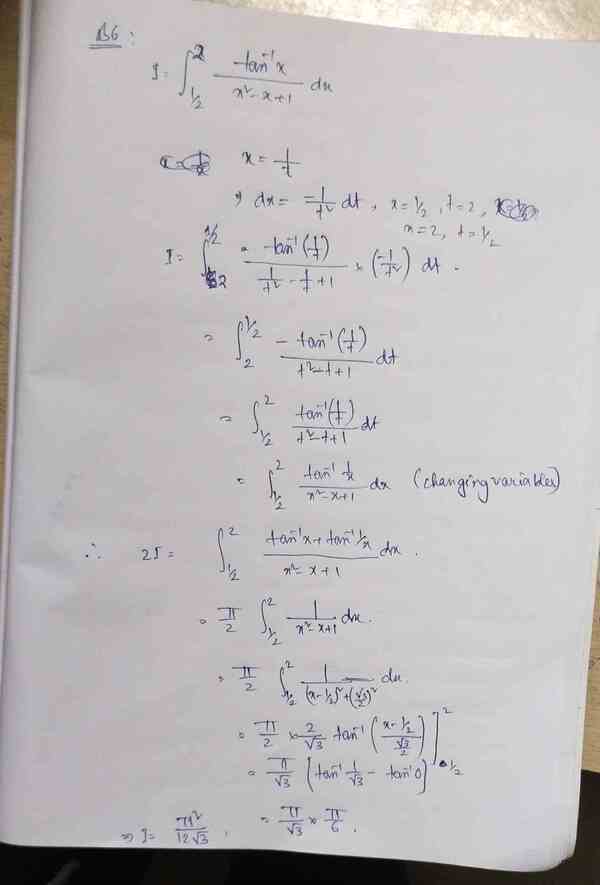 B6 :
I = ∫_{1/2}^{2} tan⁻¹x / (x² - x + 1) dx
x = 1/t
⇒ dx = -1/t² dt, x = 1/2, t = 2,
x = 2, t = 1/2
I = ∫_{2}^{1/2} tan⁻¹(1/t) / (1/t² - 1/t + 1) × (-1/t²) dt.
= ∫_{2}^{1/2} - tan⁻¹(1/t) / (t² - t + 1) dt
= ∫_{1/2}^{2} tan⁻¹(1/t) / (t² - t + 1) dt
= ∫_{1/2}^{2} tan⁻¹ 1/x / (x² - x + 1) dx (changing variables)
∴ 2I = ∫_{1/2}^{2} (tan⁻¹x + tan⁻¹ 1/x) / (x² - x + 1) dx.
= π/2 ∫_{1/2}^{2} 1 / (x² - x + 1) dx.
= π/2 ∫_{1/2}^{2} 1 / ((x - 1/2)² + (√3/2)²) dx.
= π/2 × 2/√3 tan⁻¹ ((x - 1/2) / (√3/2)) ]_{1/2}^{2}
= π/√3 [tan⁻¹ 1/√3 - tan⁻¹ 0]
= π/√3 × π/6.
⇒ I = π²/12√3,